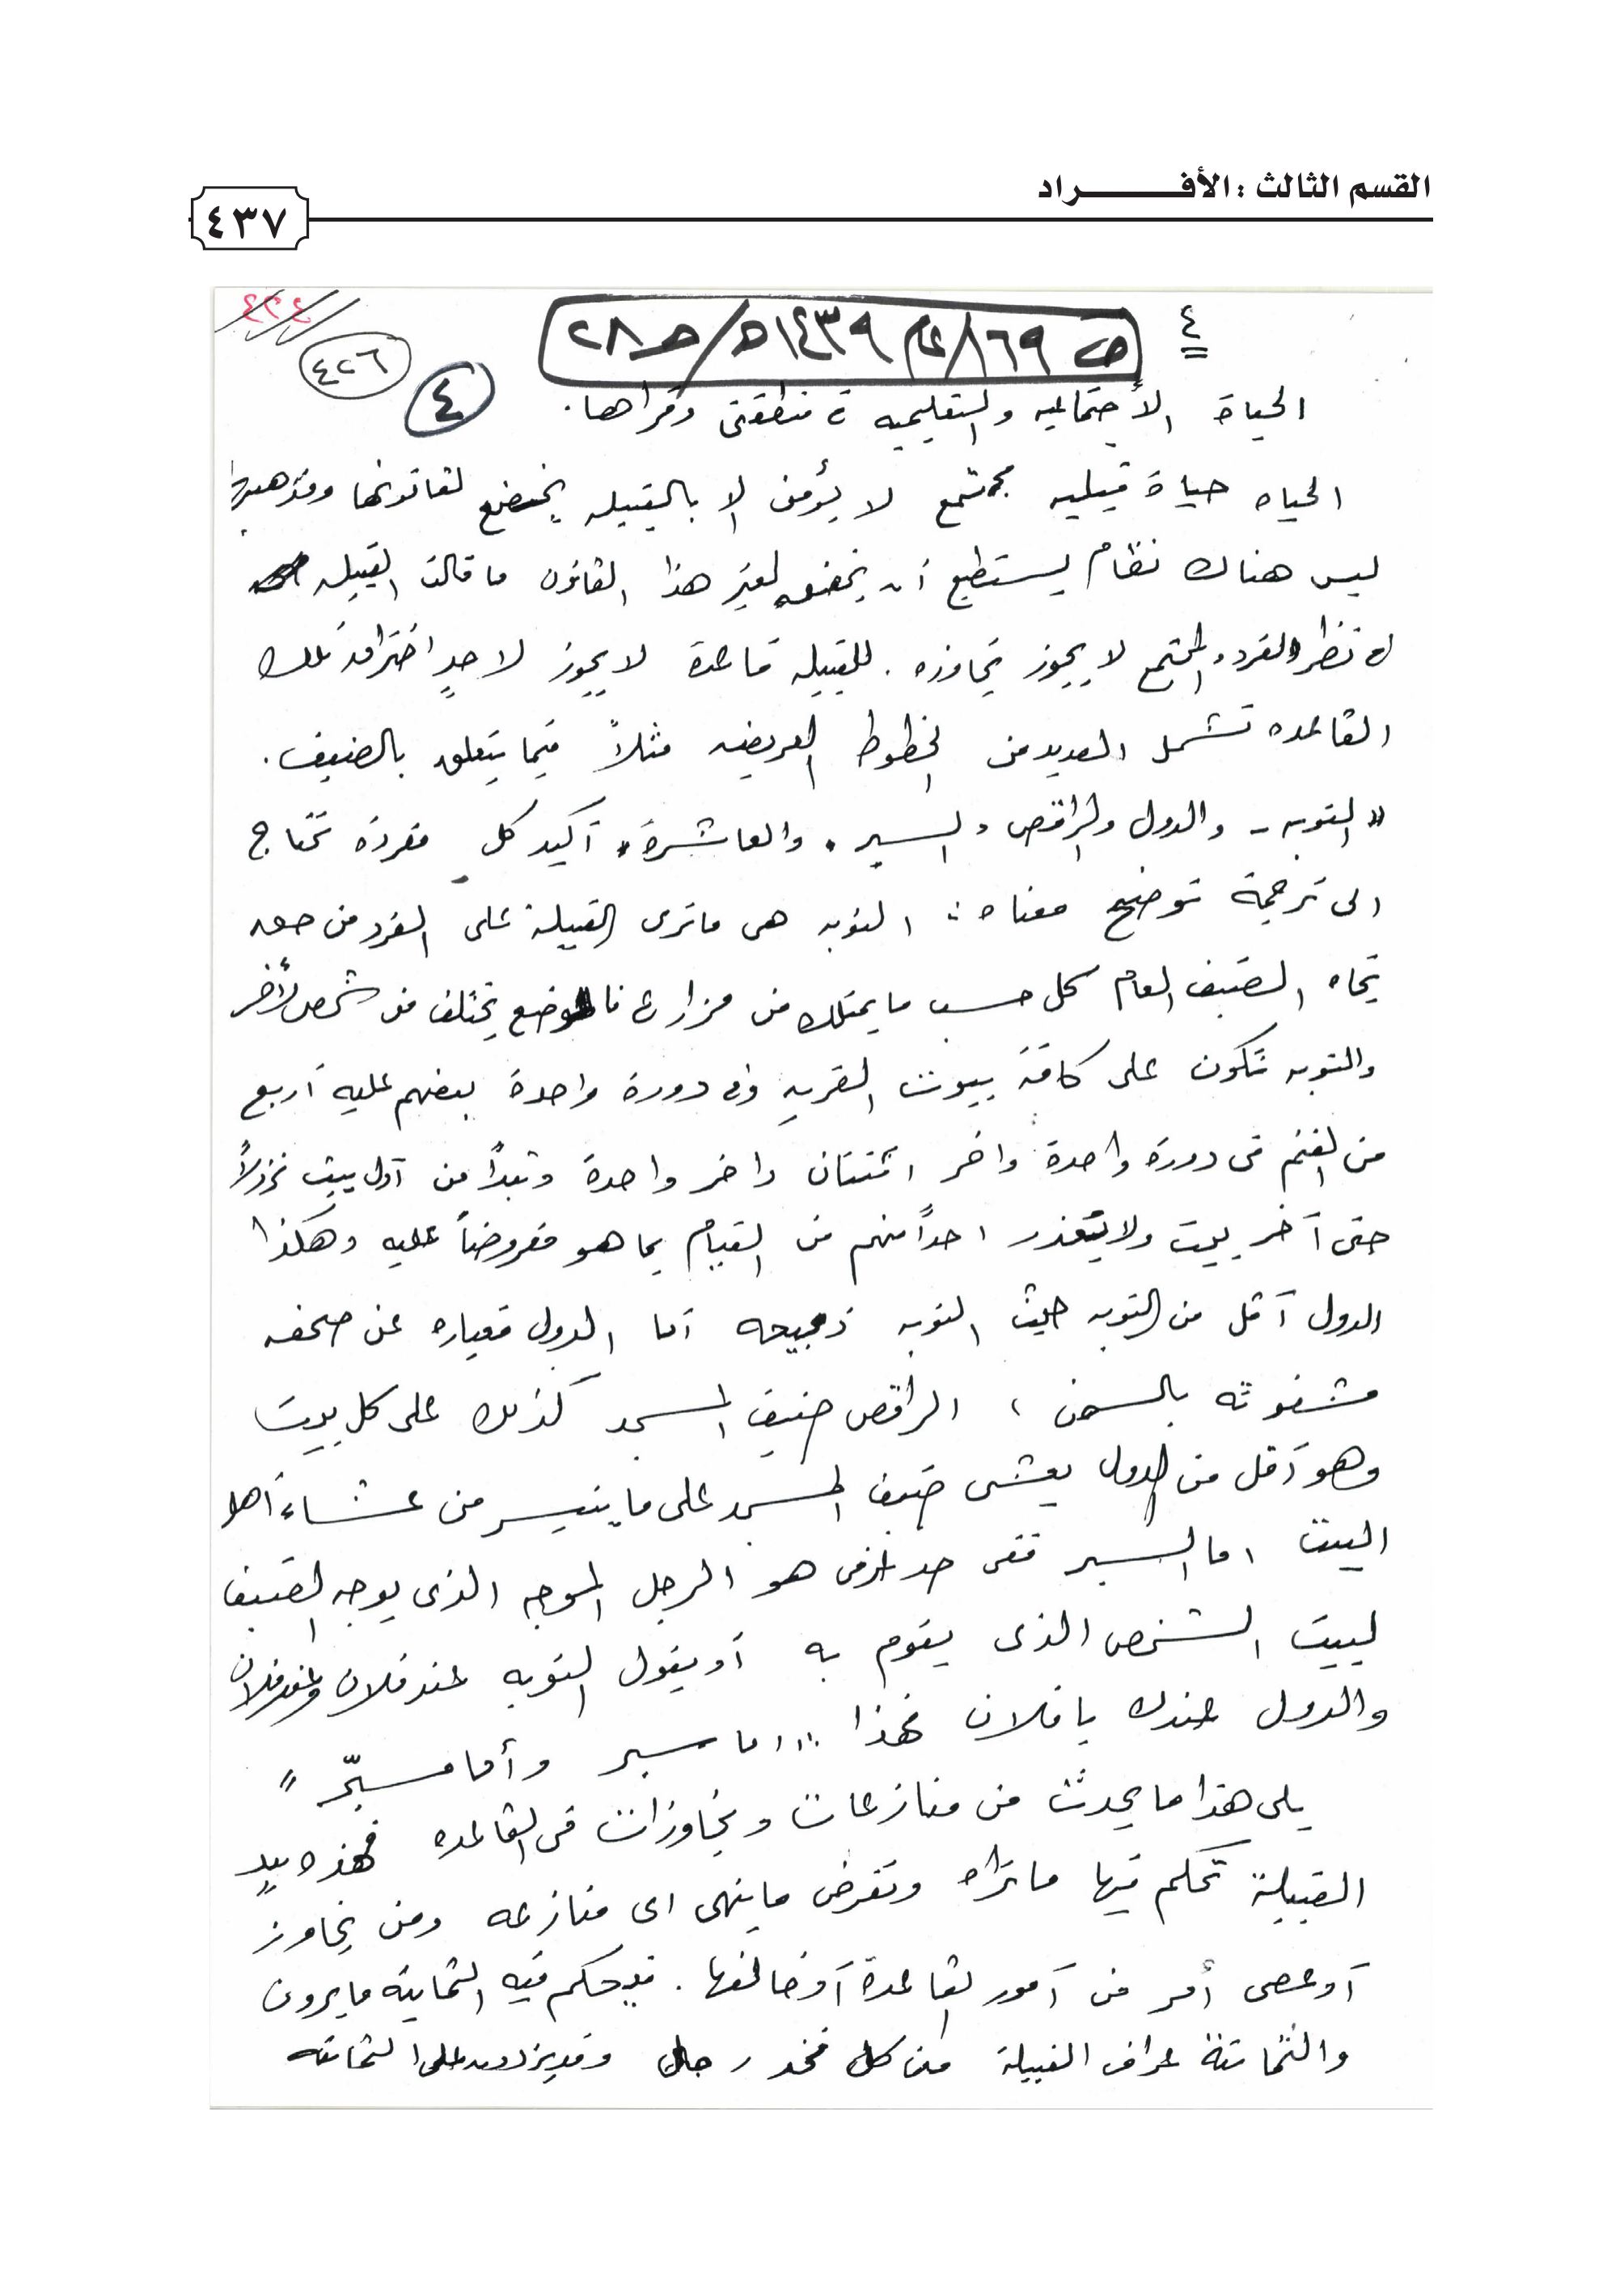 القسم الثالث : الأفـــــــراد
٤٣٧
٤
ص ٨٦٩/عام ١٤٣٩ه/حـ ٢٨
٤٢٦
٤
الحياة الأجتماعيه والتعليميه في منطقتي وقراها .
الحياه حياة قبليه مجتمع لا يؤمن إلا بالقبيله يخضع لقانونها
ليس هناك نظام يستطيع أن يخضعه لغير هذا القانون ما قالت القبيله
في نظر الفرد والمجتمع لا يجوز تجاوزه . للقبيله قاعدة لا يجوز لاحدٍ اختراقه تلك
القاعده تشمل العديد من الخطوط العريضه مثلاً فيما يتعلق بالضيف .
" النوبه - والدول والراقص والسبر ، والعاشرة ، أكيد كل مفرده تحتاج
الى ترجمة توضح معناه : النوبه هي ما ترى القبيلة على الفرد من حقه
تجاه الضيف العام كل حسب ما يمتلك من مزارع فالوضع يختلف من شخص لأخر
والنوبه تكون على كافة بيوت القريه وفي دورة واحدة بعضهم عليه أربع
من الغنم في دورة واحدة واخر اثنتان واخر واحدة وتبدأ من أول بيت نزولاً
حتى آخر بيت ولا يتعذر احداً منهم من القيام بما هو مفروضاً عليه وهكذا
الدول أقل من النوبه حيث النوبه ذبيحه أما الدول فعباره عن صحفه
مشغوثه بالسمن ، الراقص ضيف المسجد كذلك على كل بيت
وهو أقل من الدول يعشى ضيف المسجد على ما يتيسر من عشاء أهل
البيت اما السبر ففي هو الرجل الموجه الذي يوجه الضيف
لبيت الشخص الذي يقوم به أو يقول النوبه عند فلان وعند فلان
والدول عندك يا فلان فهذا " اما سبر وأما مسبّر "
يلي هذا ما يحدث من منازعات وتجاوزات في القاعده فهذه بيدِ
القبيلة تحكم فيها ما تراه وتفرض ما ينهى اي منازعه ومن تجاوز
أو عصى أمر من أمور القاعدة أو خالفها . فيحكم فيه الثمانية ما يرون
والثمانية عراف القبيلة من كل فخد رجل وقد يزيدون على الثمانيه